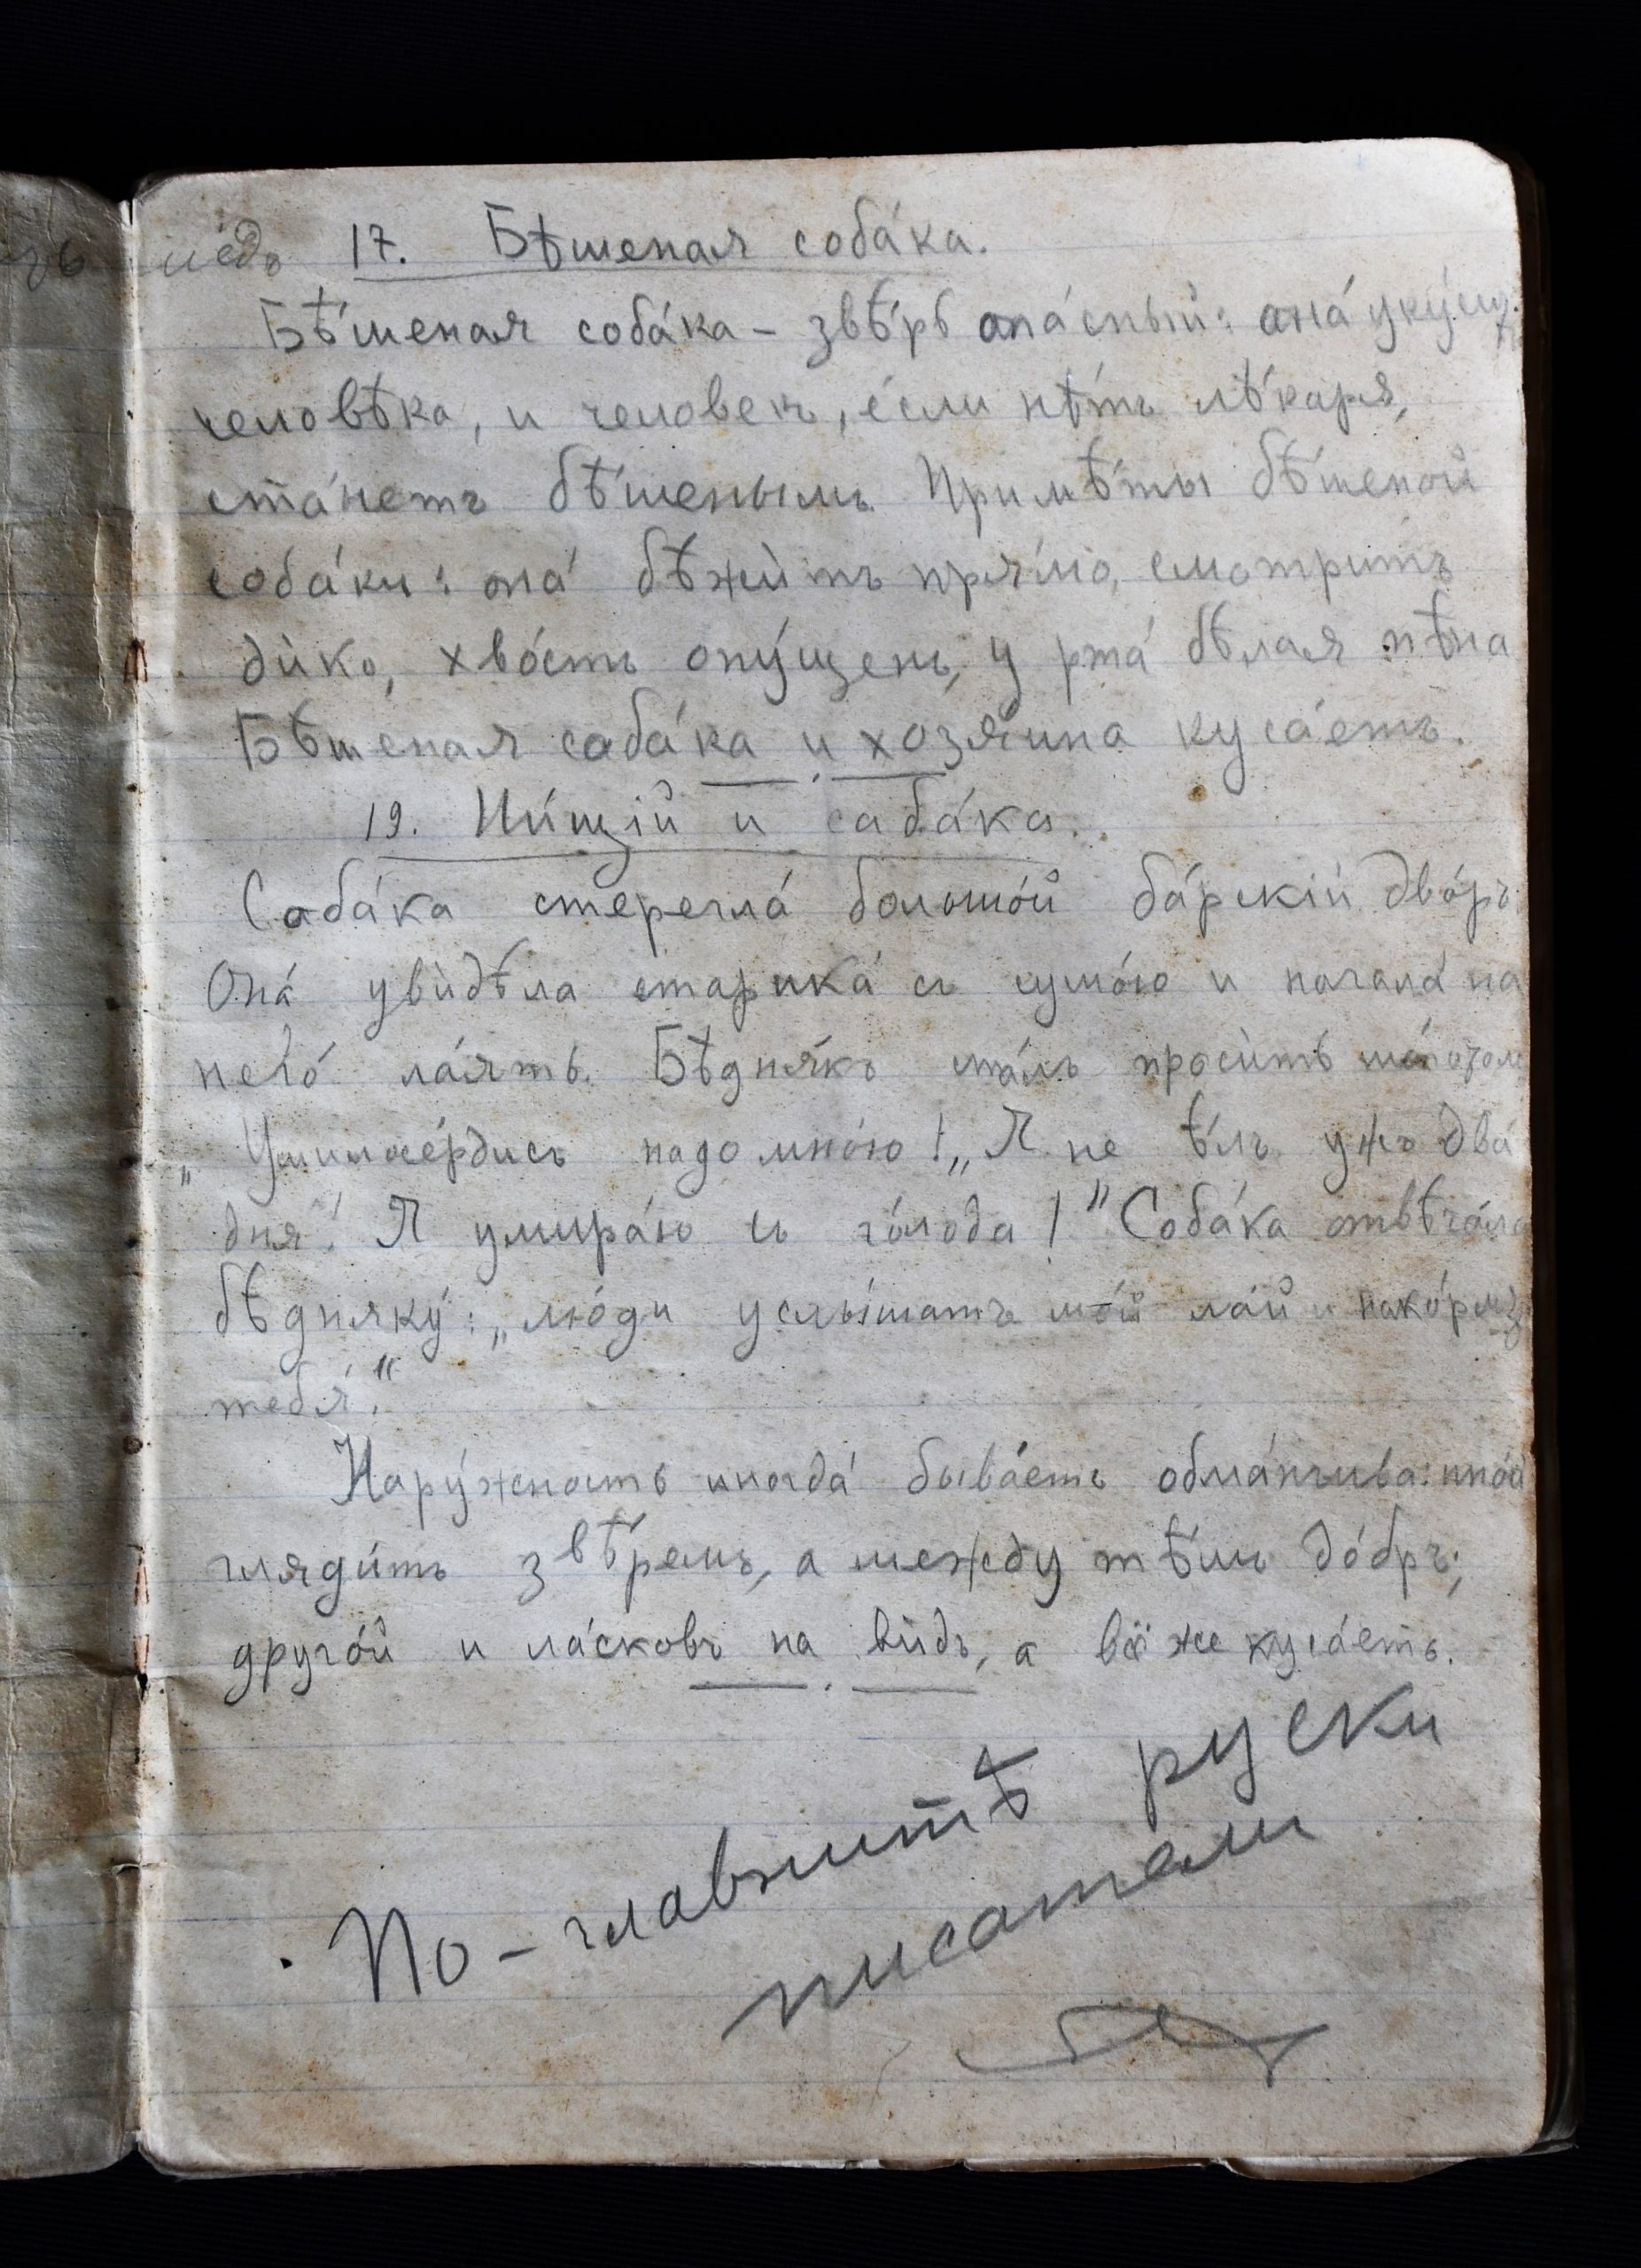 17. Бѣшеная соба́ка.
Бѣ́шеная соба́ка – звѣ́рь апа́сный: ана́
человѣ́ка, и человек, е́сли нѣ́тъ лѣ́каря,
ста́нетъ бѣ́шенымъ. Примѣ́ты бѣ́шеной
соба́ки: она́ бѣжи́тъ пря́мо, смотритъ
ди́ко, хво́стъ опу́щенъ, у рта́ бѣлая пѣна
Бѣ́шеная саба́ка и хозя́ина куса́етъ.
19. Ни́щій и саба́ка.
Саба́ка стерегла́ большо́й ба́рскій дво́ръ
Она́ уви́дѣла старика́ съ сумо́ю и начала́ на
него́ ла́ять. Бѣдня́къ ста́лъ проси́ть
„Умилосе́рдись надо мно́ю! „Я не ѣ́лъ ужъ два́
дня! Я умира́ю съ го́лода!" Соба́ка отвѣча́ла
бѣдняку́: „лю́ди услы́шатъ мо́й ла́й и
тебя́."
Нару́жность иногда́ быва́етъ обма́нчива: ино́й
гляди́тъ звѣ́ремъ, а между тѣ́мъ до́бръ;
друго́й и ла́сковъ на ви́дъ, а всё же куса́етъ.
По-главнитѣ руски
писатели